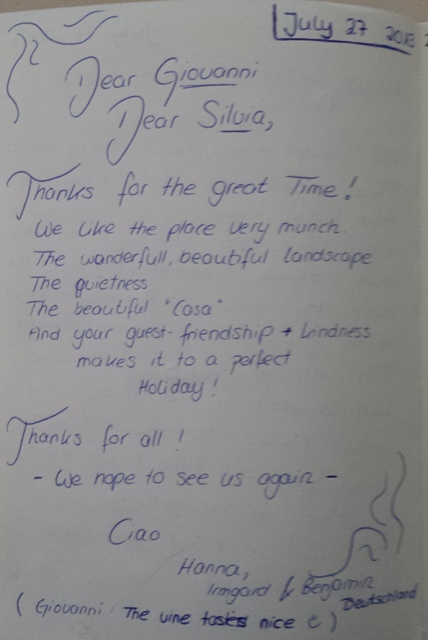 July 27 2013
Dear Giovanni
Dear Silvia,
Thanks for the great Time!
We like the place very munch.
The wanderfull, beautiful landscape
The quietness
The beautiful "Casa"
And your guest-friendship + kindness
makes it to a perfect
Holiday!
Thanks for all!
- We hope to see us again -
Ciao
Hanna,
Irmgard & Benjamin
Deutschland
(Giovanni: The wine tastes nice c)